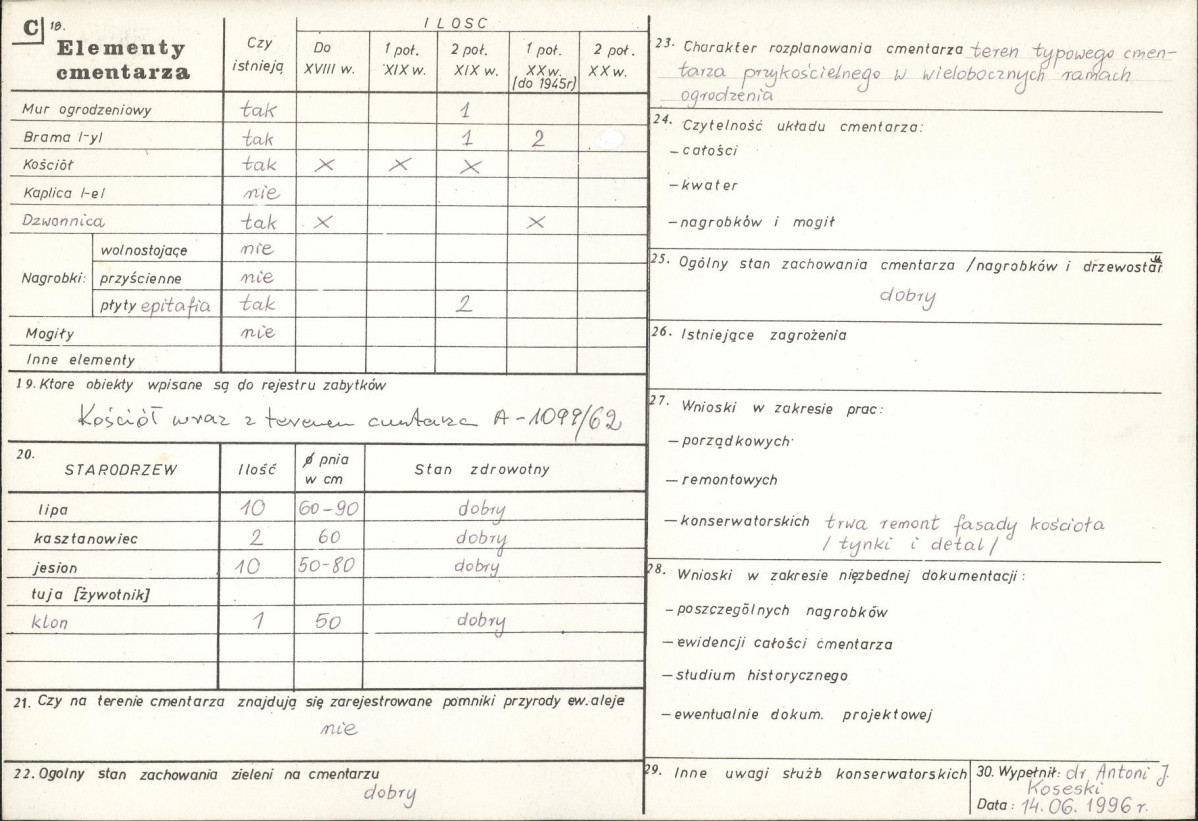 C 18.
Elementy
cmentarza
Czy
istnieją
ILOSC
Do
XVIII w.
1 poł.
XIX w.
2 poł.
XIX w.
1 poł.
XX w.
(do 1945r)
2 poł.
XX w.
Mur ogrodzeniowy tak 1
Brama /-y/ tak 1 2
Kościół tak X X X
Kaplica /-e/ nie
Dzwonnica tak X X
Nagrobki: wolnostojące nie
przyścienne nie
płyty epitafia tak 2
Mogiły nie
Inne elementy
19. Ktore obiekty wpisane są do rejestru zabytków
Kościół wraz z terenem cmentarza A-1099/62
20.
STARODRZEW Ilość ø pnia w cm Stan zdrowotny
lipa 10 60-90 dobry
kasztanowiec 2 60 dobry
jesion 10 50-80 dobry
tuja [żywotnik]
klon 1 50 dobry
21. Czy na terenie cmentarza znajdują się zarejestrowane pomniki przyrody ew. aleje
nie
22. Ogolny stan zachowania zieleni na cmentarzu
dobry
23. Charakter rozplanowania cmentarza teren typowego cmen-
tarza przykościelnego w wielobocznych ramach
ogrodzenia
24. Czytelność układu cmentarza:
- całości
- kwater
- nagrobków i mogił
25. Ogólny stan zachowania cmentarza /nagrobków i drzewostan
dobry
26. Istniejące zagrożenia
27. Wnioski w zakresie prac:
- porządkowych
- remontowych
- konserwatorskich trwa remont fasady kościoła
/ tynki i detal /
28. Wnioski w zakresie nięzbednej dokumentacji:
- poszczególnych nagrobków
- ewidencji całości cmentarza
- studium historycznego
- ewentualnie dokum. projektowej
29. Inne uwagi służb konserwatorskich
30. Wypełnił: dr Antoni J.
Koseski
Data: 14.06.1996 r.